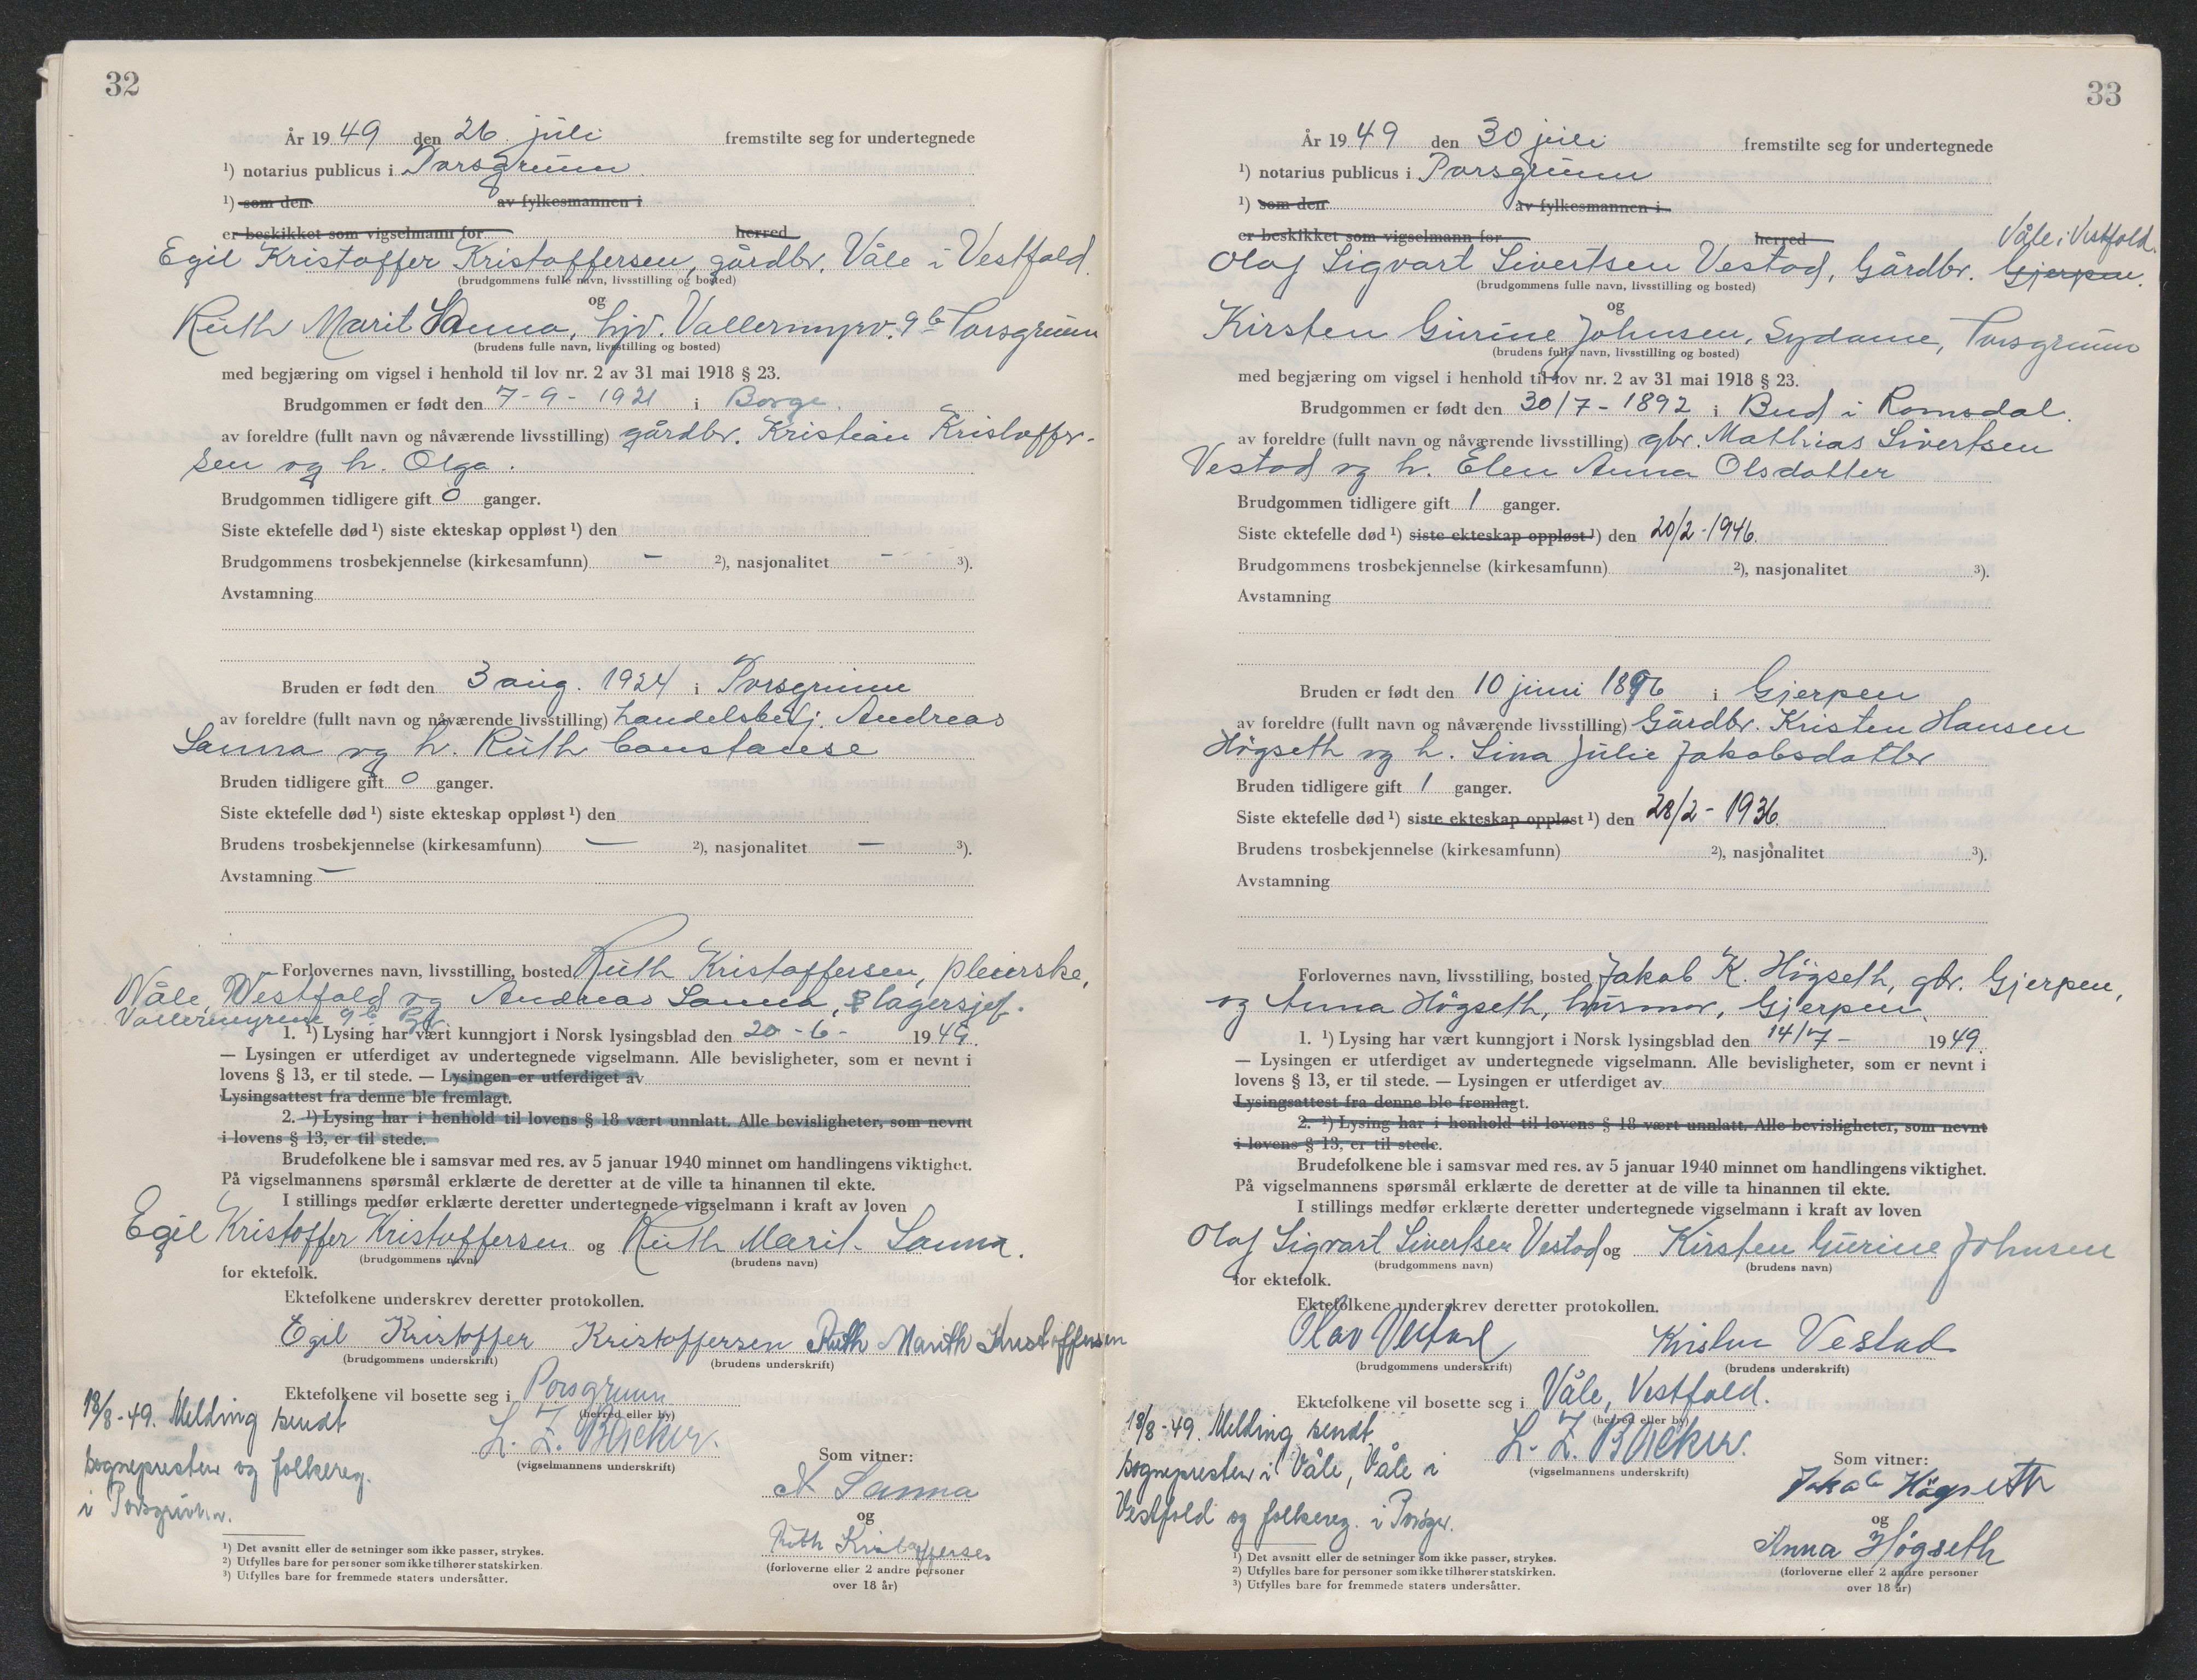 32
År 1949 den 26. juli fremstilte seg for undertegnede
¹) notarius publicus i Porsgrunn
¹) som den av fylkesmannen i
er beskikket som vigselmann for herred
Egil Kristoffer Kristoffersen, gårdbr. Våle i Vestfold.
(brudgommens fulle navn, livsstilling og bosted)
og
Ruth Marit Sanna, hjv. Vallermyrv. 9b Porsgrunn
(brudens fulle navn, livsstilling og bosted)
med begjæring om vigsel i henhold til lov nr. 2 av 31 mai 1918 § 23.
Brudgommen er født den 7-9-1921 i Borge.
av foreldre (fullt navn og nåværende livsstilling) gårdbr. Kristian Kristoffer-
sen og h. Olga.
Brudgommen tidligere gift 0 ganger.
Siste ektefelle død ¹) siste ekteskap oppløst ¹) den
Brudgommens trosbekjennelse (kirkesamfunn) — ²), nasjonalitet — ³).
Avstamning
Bruden er født den 3 aug. 1924 i Porsgrunn
av foreldre (fullt navn og nåværende livsstilling) handelsbetj. Andreas
Sanna og h. Ruth Constanse
Bruden tidligere gift 0 ganger.
Siste ektefelle død ¹) siste ekteskap oppløst ¹) den
Brudens trosbekjennelse (kirkesamfunn) — ²), nasjonalitet — ³).
Avstamning —
Forlovernes navn, livsstilling, bosted Ruth Kristoffersen, pleierske,
Våle, Vestfold og Andreas Sanna, lagersjef.
Vallermyrene 9b Pgr.
1. ¹) Lysing har vært kunngjort i Norsk lysingsblad den 20-6- 1949.
— Lysingen er utferdiget av undertegnede vigselmann. Alle bevisligheter, som er nevnt i
lovens § 13, er til stede. — Lysingen er utferdiget av
Lysingsattest fra denne ble fremlagt.
2. ¹) Lysing har i henhold til lovens § 18 vært unnlatt. Alle bevisligheter, som nevnt
i lovens § 13, er til stede.
Brudefolkene ble i samsvar med res. av 5 januar 1940 minnet om handlingens viktighet.
På vigselmannens spørsmål erklærte de deretter at de ville ta hinannen til ekte.
I stillings medfør erklærte deretter undertegnede vigselmann i kraft av loven
Egil Kristoffer Kristoffersen og Ruth Marit Sanna.
(brudgommens navn) (brudens navn)
for ektefolk.
Ektefolkene underskrev deretter protokollen.
Egil Kristoffer Kristoffersen Ruth Marith Kristoffersen
(brudgommens underskrift) (brudens underskrift)
Ektefolkene vil bosette seg i Porsgrunn
(herred eller by)
18/8-49. Melding sendt
sognepresten og folkereg.
i Porsgrunn.
L. Z. Backer.
(vigselmannens underskrift)
Som vitner:
A Sanna
og
Ruth Kristoffersen
(forloverne eller 2 andre personer
over 18 år)
¹) Det avsnitt eller de setninger som ikke passer, strykes.
²) Utfylles bare for personer som ikke tilhører statskirken.
³) Utfylles bare for fremmede staters undersåtter.
33
År 1949 den 30 juli fremstilte seg for undertegnede
¹) notarius publicus i Porsgrunn
¹) som den av fylkesmannen i
er beskikket som vigselmann for herred
Våle i Vestfold.
Olaf Sigvart Sivertsen Vestad, Gårdbr. Gjerpen.
(brudgommens fulle navn, livsstilling og bosted)
og
Kirsten Gurine Johnsen, Sydame, Porsgrunn
(brudens fulle navn, livsstilling og bosted)
med begjæring om vigsel i henhold til lov nr. 2 av 31 mai 1918 § 23.
Brudgommen er født den 30/7-1892 i Bud i Romsdal.
av foreldre (fullt navn og nåværende livsstilling) gbr. Mathias Sivertsen
Vestad og h. Elen Anna Olsdatter
Brudgommen tidligere gift 1 ganger.
Siste ektefelle død ¹) siste ekteskap oppløst ¹) den 20/2-1946.
Brudgommens trosbekjennelse (kirkesamfunn) ²), nasjonalitet ³).
Avstamning
Bruden er født den 10 juni 1896 i Gjerpen
av foreldre (fullt navn og nåværende livsstilling) Gårdbr. Kristen Hansen
Högseth og h. Lina Julie Jakobsdatter
Bruden tidligere gift 1 ganger.
Siste ektefelle død ¹) siste ekteskap oppløst ¹) den 28/2-1936.
Brudens trosbekjennelse (kirkesamfunn) ²), nasjonalitet ³).
Avstamning
Forlovernes navn, livsstilling, bosted Jakob K. Högseth, gbr. Gjerpen,
og Anna Högseth, husmor, Gjerpen.
1. ¹) Lysing har vært kunngjort i Norsk lysingsblad den 14/7- 1949.
— Lysingen er utferdiget av undertegnede vigselmann. Alle bevisligheter, som er nevnt i
lovens § 13, er til stede. — Lysingen er utferdiget av
Lysingsattest fra denne ble fremlagt.
2. ¹) Lysing har i henhold til lovens § 18 vært unnlatt. Alle bevisligheter, som nevnt
i lovens § 13, er til stede.
Brudefolkene ble i samsvar med res. av 5 januar 1940 minnet om handlingens viktighet.
På vigselmannens spørsmål erklærte de deretter at de ville ta hinannen til ekte.
I stillings medfør erklærte deretter undertegnede vigselmann i kraft av loven
Olaf Sigvart Sivertsen Vestad og Kirsten Gurine Johnsen
(brudgommens navn) (brudens navn)
for ektefolk.
Ektefolkene underskrev deretter protokollen.
Olav Vestad Kirsten Vestad
(brudgommens underskrift) (brudens underskrift)
Ektefolkene vil bosette seg i Våle, Vestfold.
(herred eller by)
18/8-49. Melding sendt
sognepresten i Våle, Våle i
Vestfold og folkereg. i Porsgr.
L. Z. Backer.
(vigselmannens underskrift)
Som vitner:
Jakob Högseth
og
Anna Högseth
(forloverne eller 2 andre personer
over 18 år)
¹) Det avsnitt eller de setninger som ikke passer, strykes.
²) Utfylles bare for personer som ikke tilhører statskirken.
³) Utfylles bare for fremmede staters undersåtter.